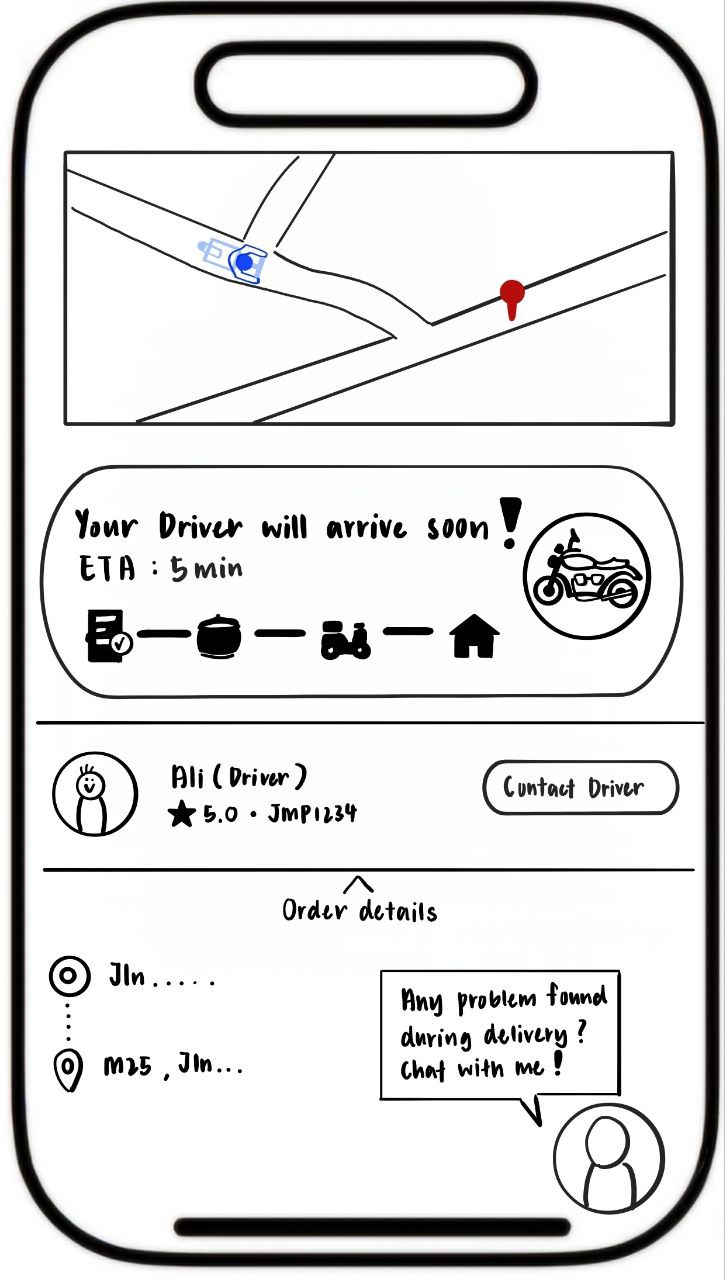 Your Driver will arrive soon!
ETA : 5 min
Ali (Driver)
★ 5.0 • JMP1234
Contact Driver
Order details
Jln.....
M25, Jln...
Any problem found
during delivery?
Chat with me!